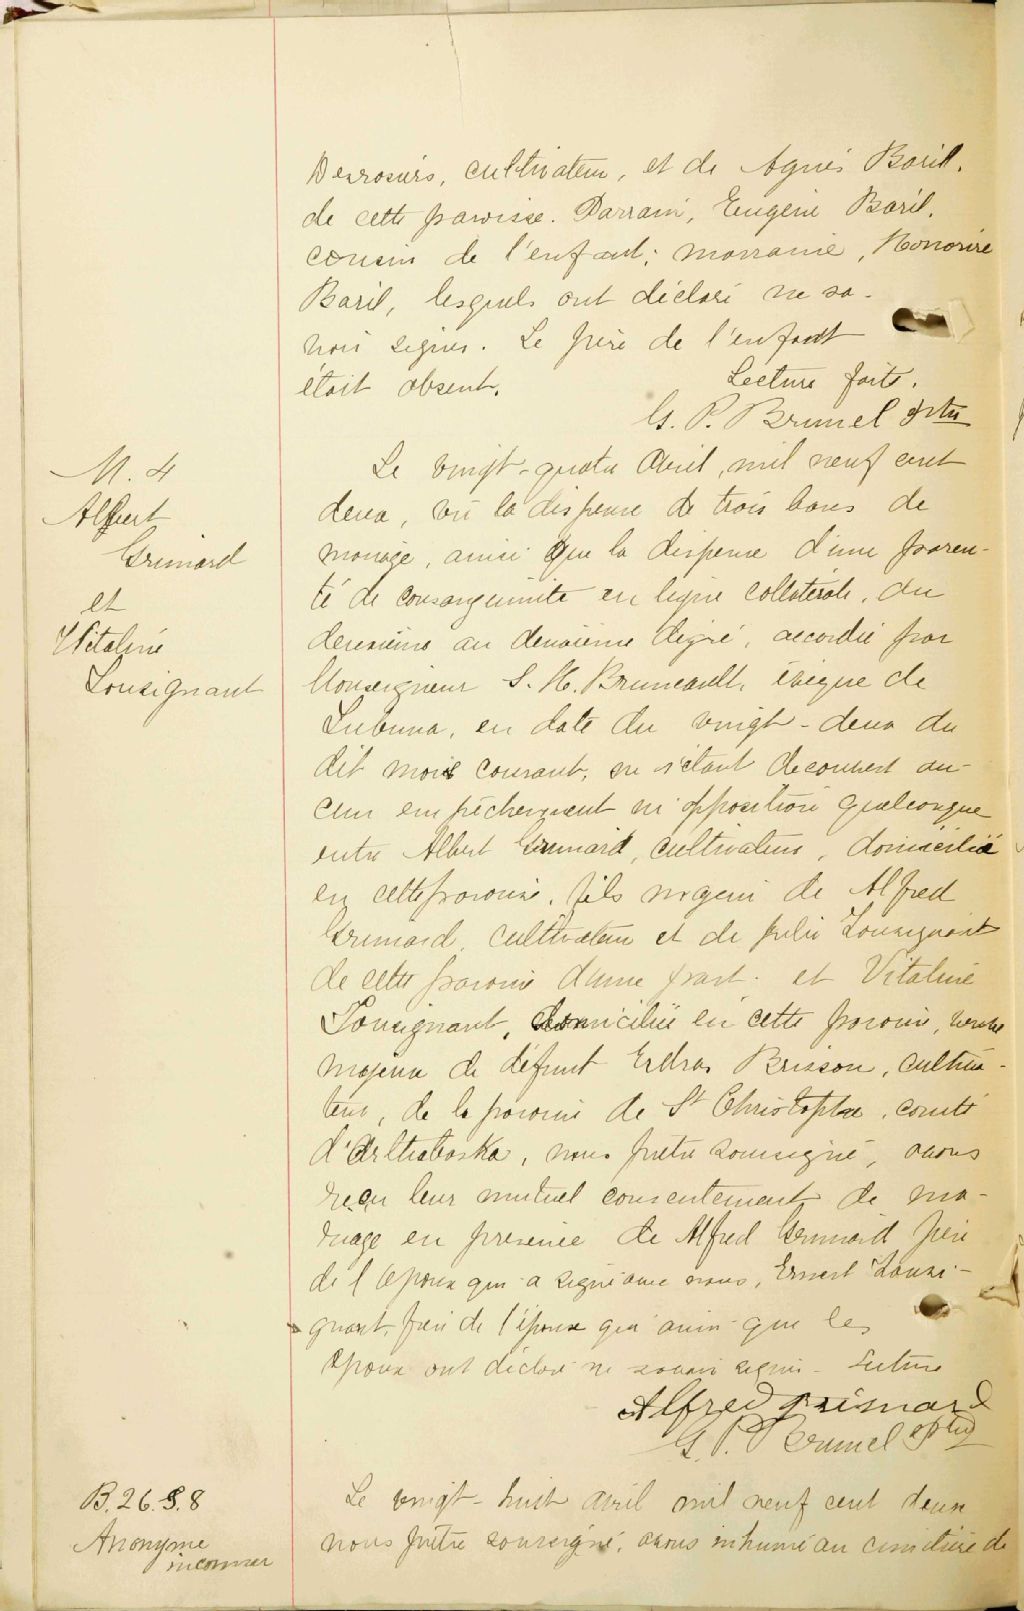 Desrosiers, cultivateur, et de Agnès Baril,
de cette paroisse. Parrain, Eugène Baril,
cousin de l'enfant; marraine, Honorire
Baril, lesquels ont déclaré ne sa-
voir signer. Le père de l'enfant
était absent. Lecture faite.
G. P. Brunel ptre
M. 4
Albert
Grimard
et
Vitaline
Lousignant
Le vingt-quatre Avril, mil neuf cent
deux, vu la dispense de trois bans de
mariage, ainsi que la dispense d'une paren-
té de consanguinité en ligne collatérale, du
deuxième au deuxième degré, accordée par
Monseigneur S. H. Bruneault, évêque de
Lubuna, en date du vingt-deux du
dit mois courant, ne s'étant découvert au-
cun empêchement ni opposition quelconque
entre Albert Grimard, cultivateur, domicilié
en cette paroisse, fils majeur de Alfred
Grimard, cultivateur et de Julie Lousignant
de cette paroisse d'une part. et Vitaline
Lousignant, domiciliée en cette paroisse, veuve
majeure de défunt Esdras Brisson, cultiva-
teur, de la paroisse de St Christophe, comté
d'Arthabaska, nous prêtre soussigné, avons
reçu leur mutuel consentement de ma-
riage en présence de Alfred Grimard père
de l'époux qui a signé avec nous, Ernest Lousi-
gnant, frère de l'épouse qui ainsi que les
époux ont déclaré ne savoir signer - Lecture
Alfred Grimard
G. P. Brunel ptre
B. 26. S. 8
Anonyme
inconnu
Le vingt-huit avril mil neuf cent deux
nous prêtre soussigné, avons inhumé au cimetière de